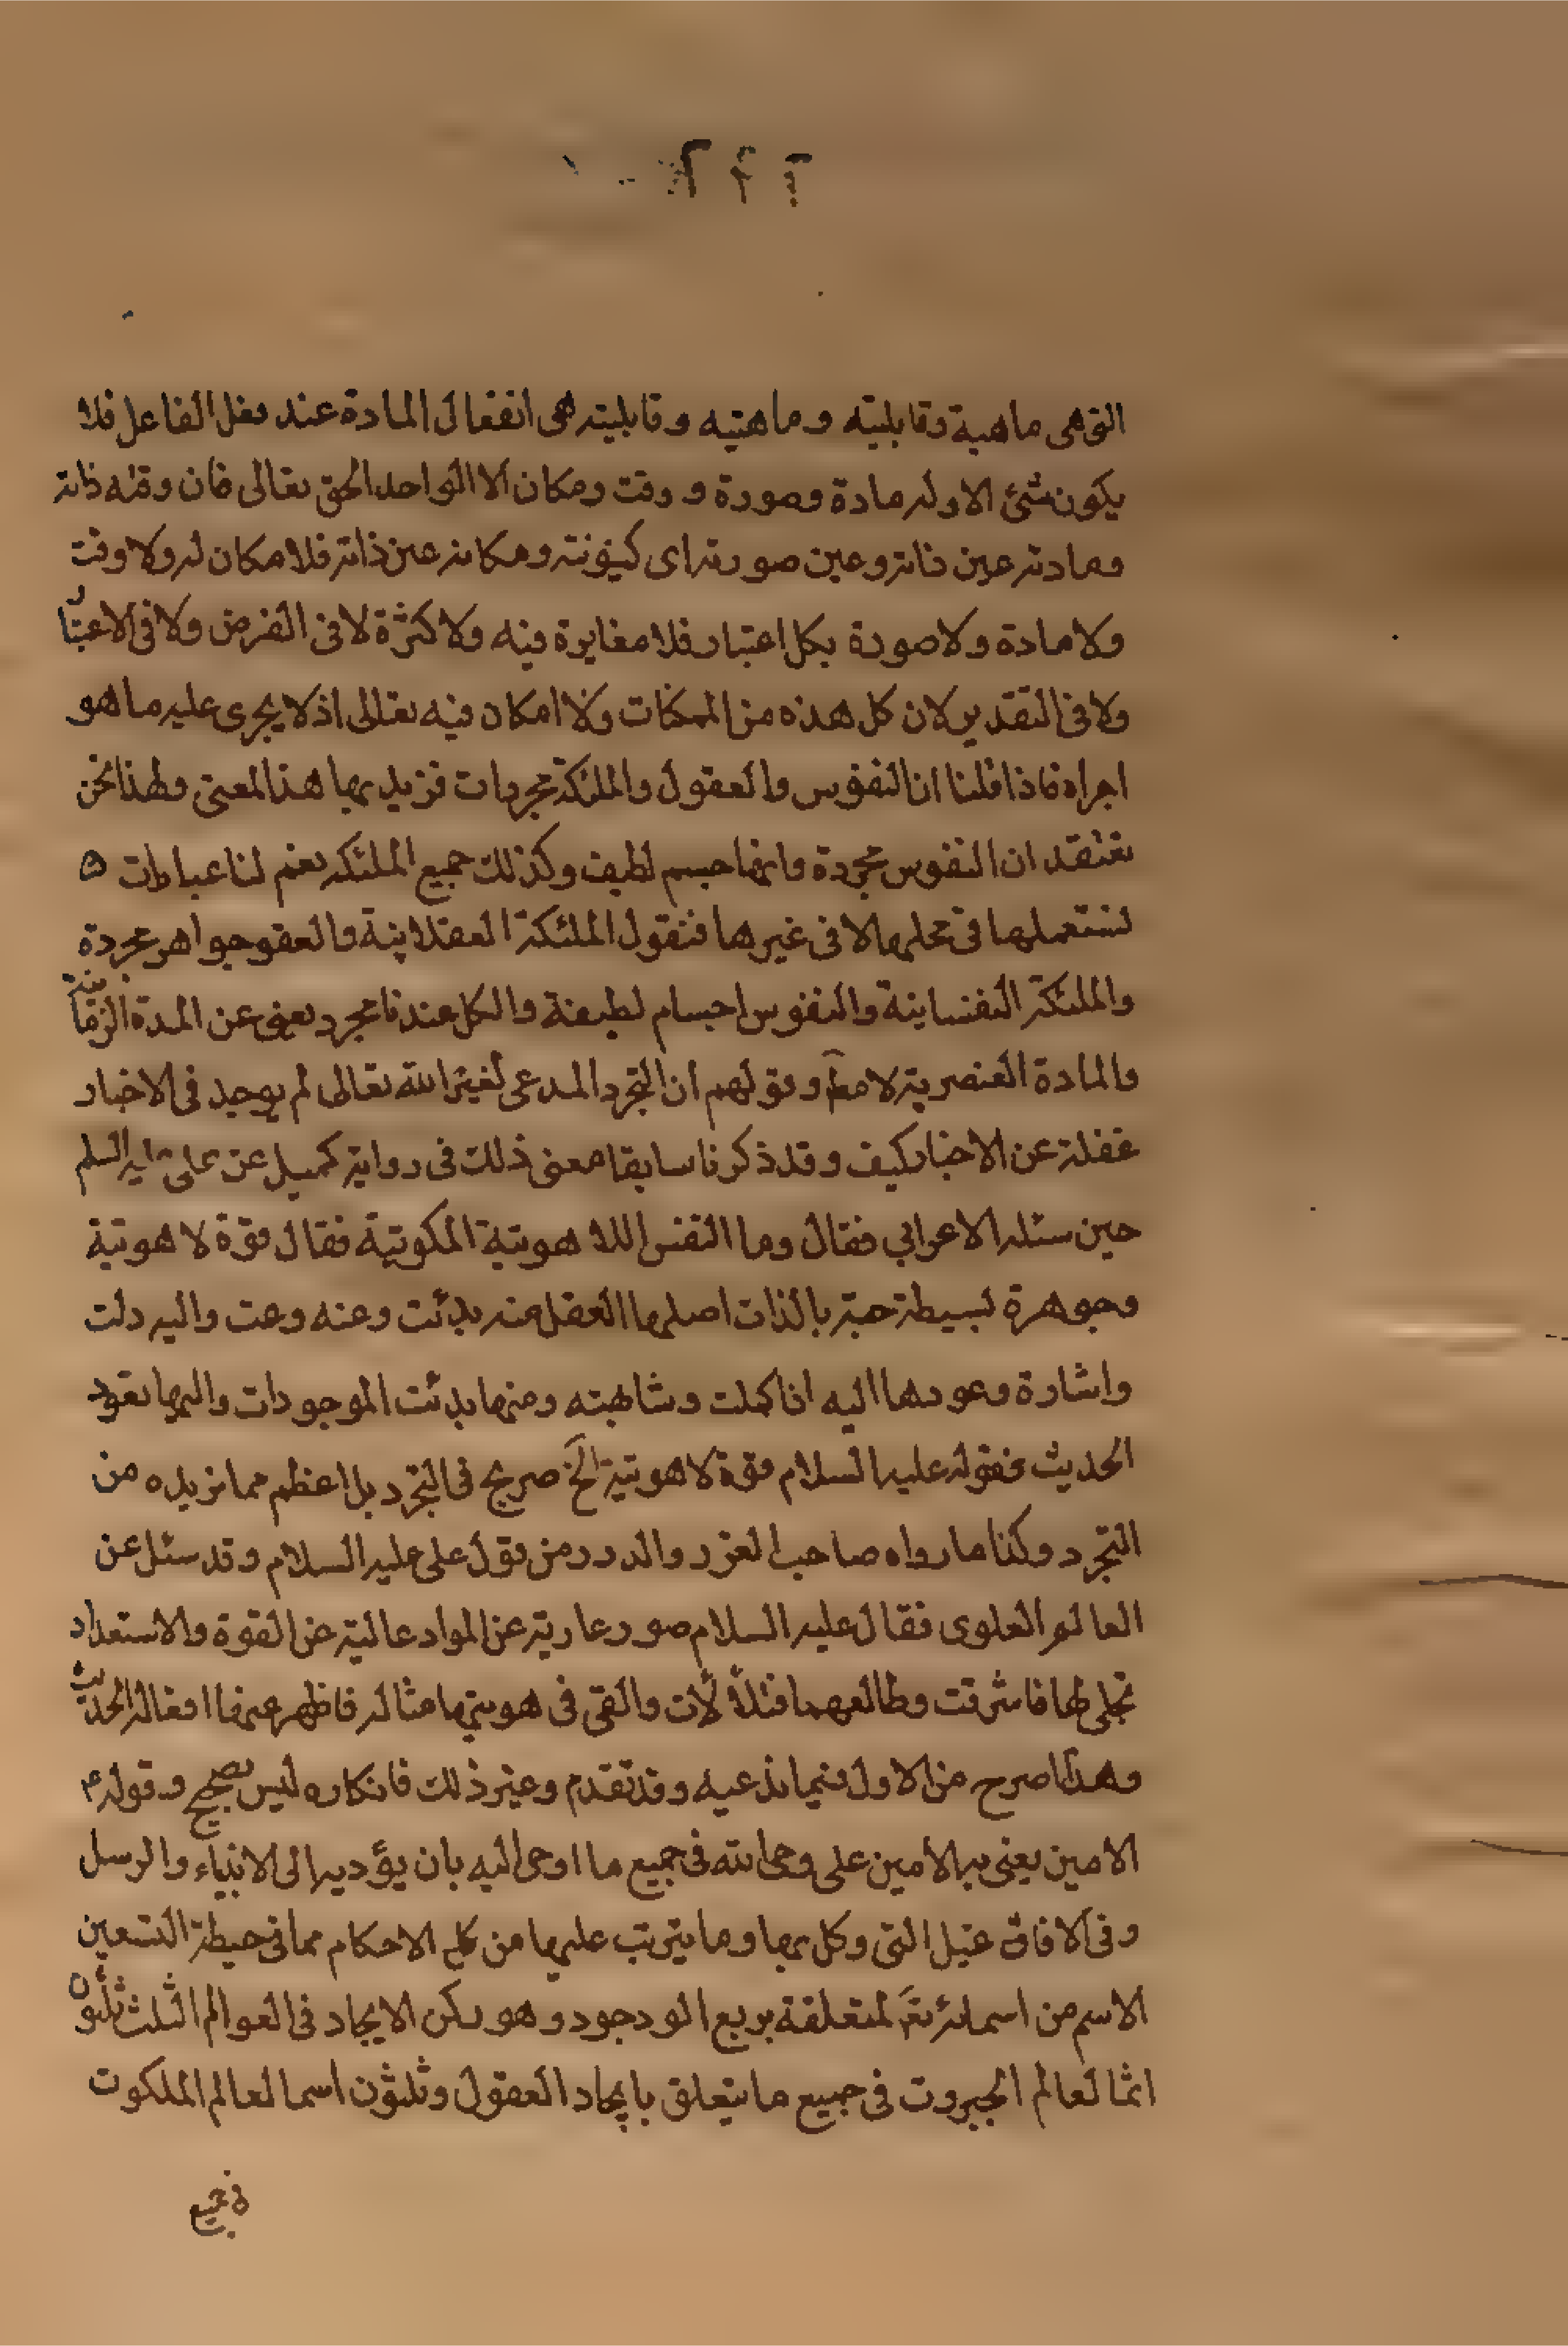 التى هى ماهية وقابليته وماهيته وقابليته هى انفعال المادة عند فعل الفاعل فلا
يكون شئ الا وله مادة وصورة و وقت ومكان الا الواحد الحق تعالى فان وقته ذاته
ومادته عين ذاته وعين صورته اى كينونته ومكانه عين ذاته فلا مكان له ولا وقت
ولا مادة ولا صورة بكل اعتبار فلا مغايرة فيه ولا كثرة لا فى الفرض ولا فى الاعتبار
ولا فى التقدير لان كل هذه من الممكنات ولا امكان فيه تعالى اذ لا يجرى عليه ما هو
اجراه فاذا قلنا ان النفوس والعقول والملئكة مجردات فنريد بها هذا المعنى ولهذا نحن
نعتقد ان النفوس مجردة وانها جسم لطيف وكذلك جميع الملئكه نعم لنا عبارات
نستعملها فى محلها لا فى غيرها فنقول الملئكة العقلانية والعقو جواهر مجردة
والملئكة النفسانية والنفوس اجسام لطيفة والكل عندنا مجرد يعنى عن المدة الزمانية
والمادة العنصرية لا مط وقولهم ان التجرد المدعى لغير الله تعالى لم يوجد فى الاخبار
غفلة عن الاخبار كيف وقد ذكرنا سابقا معنى ذلك فى رواية كميل عن على عليه السلم
حين سئله الاعرابي فقال وما النفس اللاهوتية الملكوتية فقال قوة لاهوتية
وجوهرة بسيطة حية بالذات اصلها العقل منه بدئت وعنه وعت واليه دلت
واشارة وعودها اليه اذا كملت وشابهته ومنها بدئت الموجودات واليها تعود
الحديث فقوله عليه السلام قوة لاهوتية الخ صريح فى التجرد بل اعظم مما نريده من
التجرد وكذا ما رواه صاحب الغرر والدرر من قول على عليه السلام وقد سئل عن
العالم العلوى فقال عليه السلام صور عارية عن المواد عالية عن القوة والاستعداد
تجلى لها فاشرقت وطالعهما فتلألأت والقى فى هويتها مثاله فاظهر عنها افعاله الحديث
وهذا اصرح من الاول فيما ندعيه وقد تقدم وغير ذلك فانكاره ليس بصحيح وقوله م
الامين يعنى به الامين على وحى الله فى جميع ما اوحى اليه بان يؤديه الى الانبياء والرسل
وفى الافاق غيل التى وكل بها وما يترتب عليها من كل الاحكام مما فى حيطة التسعين
الاسم من اسمائه تع لمتعلقة بربع الودجود وهو ركن الايجاد فى العوالم الثلث ثلثون
اثما لعالم الجبروت فى جميع ما يتعلق بايجاد العقول وثلثون اسما لعالم الملكوت
فى جميع